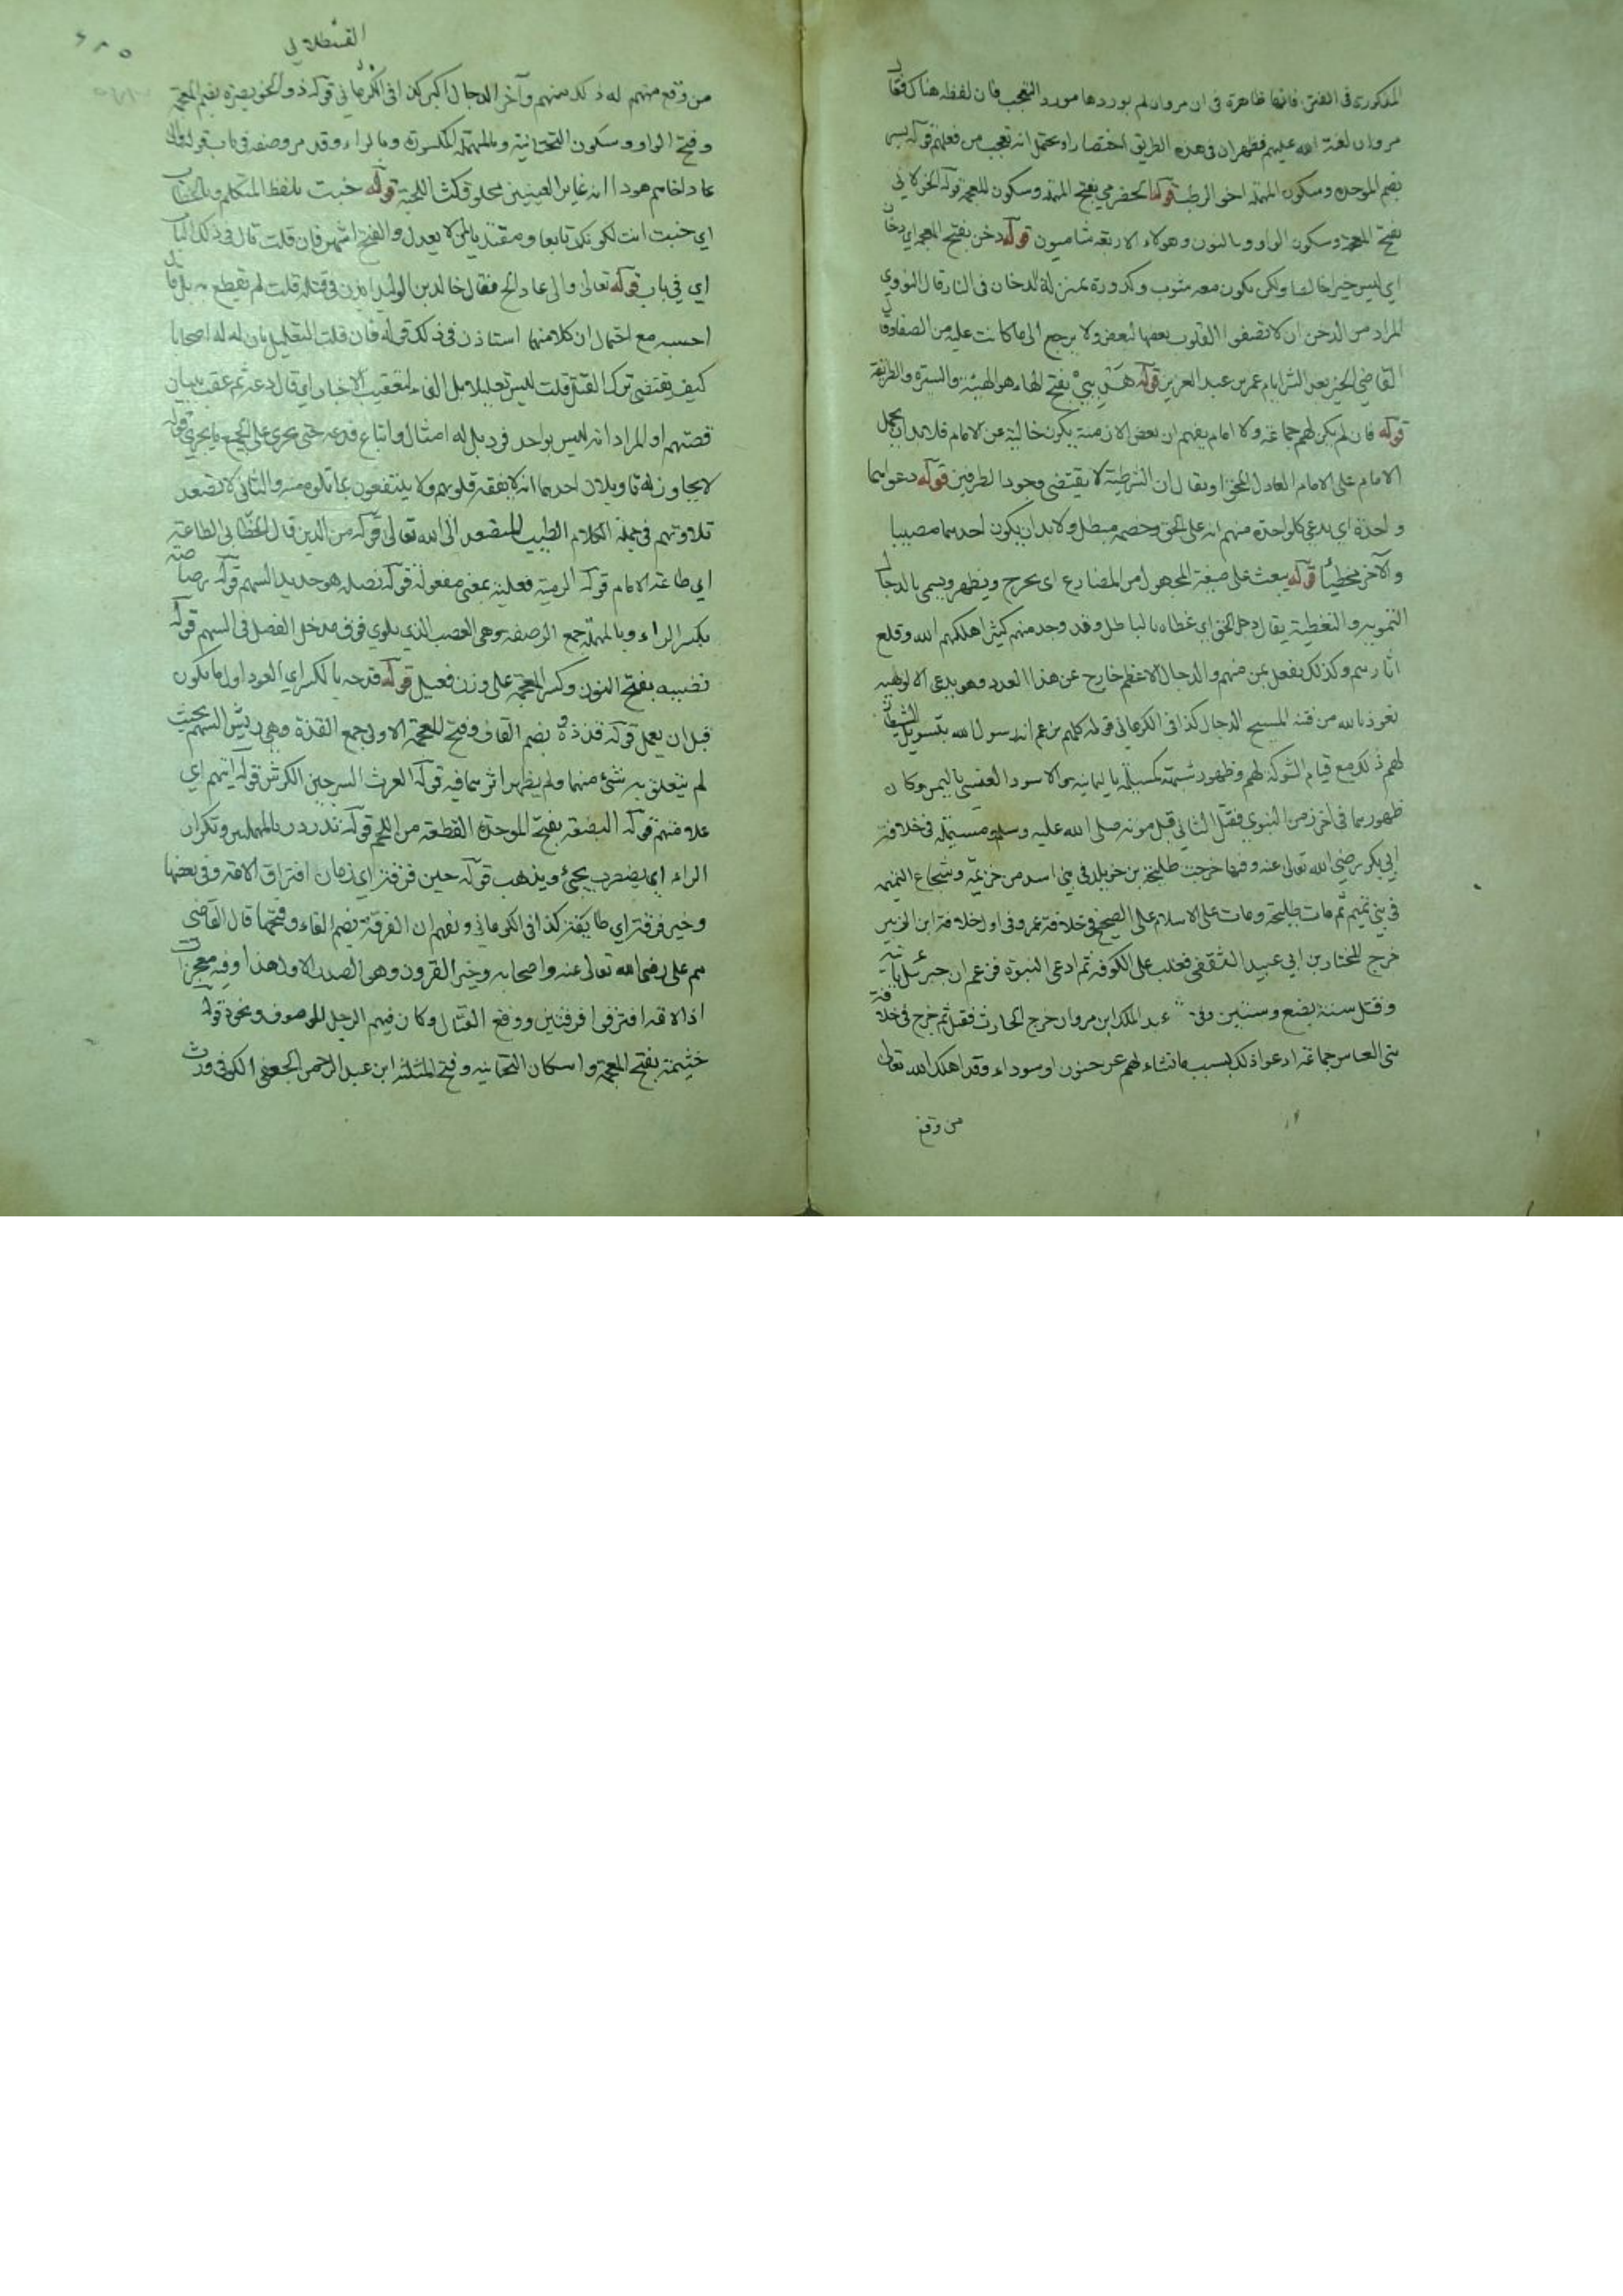 المذكورة في الفتن فانها ظاهرة في ان مروان لم يوردها مورد التعجب فان لفظه هناك فقال
مروان لعنة الله عليهم فظهر ان في هذه الطريق اختصارا ويحتمل انه تعجب من فعلهم قوله بسر
بضم الموحدة وسكون المهملة اخو الرطب قوله الحضرمي بفتح المهملة وسكون المعجمة قوله الخولاني
بفتح المعجمة وسكون الواو وبالنون وهولاء الاربعة شاميون قوله دخن بفتح المعجمة اي دخان
اي ليس خيرا خالصا ولكن يكون معه شوب وكدورة بمنزلة الدخان في النار قال النووي
المراد من الدخن ان لا تصفوا القلوب بعضها لبعض ولا يرجع الى ما كانت عليه من الصفا وقال
القاضي الخير بعد الشر ايام عمر بن عبد العزيز قوله هديي بفتح الهاء هو الهيئة والسيرة والطريقة
قوله فان لم يكن لهم جماعة ولا امام يفهم ان بعض الازمنة يكون خالية عن الامام فلا بد ان يحمل
الامام على الامام العادل المحق او يقال ان الشرطية لا يقتضي وجود الطرفين قوله دعواهما
واحدة اي يدعي كل واحدة منهم انه على الحق وخصمه مبطل ولا بد ان يكون احدهما مصيبا
والآخر مخطيا قوله يبعث على صيغة المجهول من المضارع اي يخرج ويظهر ويسمى بالدجال
التمويه والتغطية يقال دجل الحق اي غطاه بالباطل وقد وجد منهم كثيرا هلكهم الله وقلع
آثارهم وكذلك يفعل بمن منهم والدجال الاعظم خارج عن هذا العدد وهو يدعي الالوهية
نعوذ بالله من فتنة المسيح الدجال كذا في الكرماني قوله كلهم يزعم انه رسول الله بتسويل الشيطان
لهم ذلك مع قيام الشوكة لهم وظهور شبهة كمسيلمة باليمامة والاسود العنسي باليمن وكان
ظهورهما في آخر زمن النبوي فقتل الثاني قبل موته صلى الله عليه وسلم ومسيلمة في خلافة
ابي بكر رضي الله تعالى عنه وفيها خرجت طليحة بن خويلد في بني اسد من خزيمة وسجاع التميمية
في بني تميم ثم مات طليحة ومات على الاسلام على الصحيح في خلافة عمر وفي اول خلافة ابن الزبير
خرج المختار بن ابي عبيد الثقفي فغلب على الكوفة ثم ادعى النبوة فزعم ان جبرئيل يأتيه
وقتل سنة بضع وستين وفي عبد الملك ابن مروان خرج الحارث فقتل ثم خرج في خلافة
بني العباس جماعة ادعوا ذلك بسبب ما نشاء لهم عن جنون او سوداء وقد اهلك الله تعالى
من وقع
القسطلاني
من وقع منهم له ذلك منهم وآخر الدجال اكبر كذا في الكرماني قوله ذو الخويصرة بضم المعجمة
وفتح الواو وسكون التحتانية والمهملة المكسورة وبالراء وقد مر وصفه في باب قوله والى
عاد اخاهم هودا انه غاير العينين محلوق كث اللحية قوله خبت بلفظ المتكلم وبالخطاب
اي خبت انت لكونك تابعا ومقتديا لمن لا يعدل والفتح اشهر فان قلت قال في ذلك الباب
اي في باب قوله تعالى والى عاد الخ فقال خالد بن الوليد ايذن في قتله قلت لم يقطع به بل قال
احسبه مع احتمال ان كلا منهما استاذن في ذلك قوله فان قلت التعليل بان له له اصحابا
كيف يقتضي ترك القتل قلت ليس تعليلا بل الفاء لتعقيب الاخبار اي قال دعه ثم عقب ببيان
قصتهم او المراد انه ليس بواحد فرد بل له امثال واتباع فدعه حتى يجري على الجميع ما يجري قوله
لا يجاوز له تاويلان احدهما انه لا يفقه قلوبهم ولا ينتفعون بما تلوه منه والثاني لا تصعد
تلاوتهم في جملة الكلام الطيب المتصعد الى الله تعالى قوله من الدين قال الخطابي الطاعة
اي طاعة الامام قوله الرمية فعيلة بمعنى مفعولة قوله نصله هو حديد السهم قوله رصافه
بكسر الراء وبالمهملة جمع الرصفة وهي العصب الذي يلوي فوق مدخل النصل في السهم قوله
نضيه بفتح النون وكسر المعجمة على وزن فعيل قوله قدحه بالكسر اي العود اول ما يكون
قبل ان يعمل قوله قذذه بضم القاف وفتح المعجمة الاولى جمع القذة وهي ريش السهم بحيث
لم يتعلق به شئ منهما ولم يظهر اثرهما فيه قوله الفرث السرجين الكرش قوله آيتهم اي
علامتهم قوله البضعة بفتح الموحدة القطعة من اللحم قوله تدردر بالمهملتين وتكرار
الراء اي يضطرب يجئ ويذهب قوله حين فرقة اي زمان افتراق الامة وفي بعضها
وخير فرقة اي طايفة كذا في الكرماني ويفهم ان الفرقة بضم الفاء وفتحها قال القاضي
هم علي رضي الله تعالى عنه واصحابه وخير القرون وهو الصدر الاول هذا وفيه معجزات
اذ الامة افترقوا فرقتين ووقع القتال وكان فيهم الرجل الموصوف ونحوه قوله
خثيمة بفتح المعجمة واسكان التحتانية وفتح المثلثة ابن عبد الرحمن الجعفي الكوفي ورث